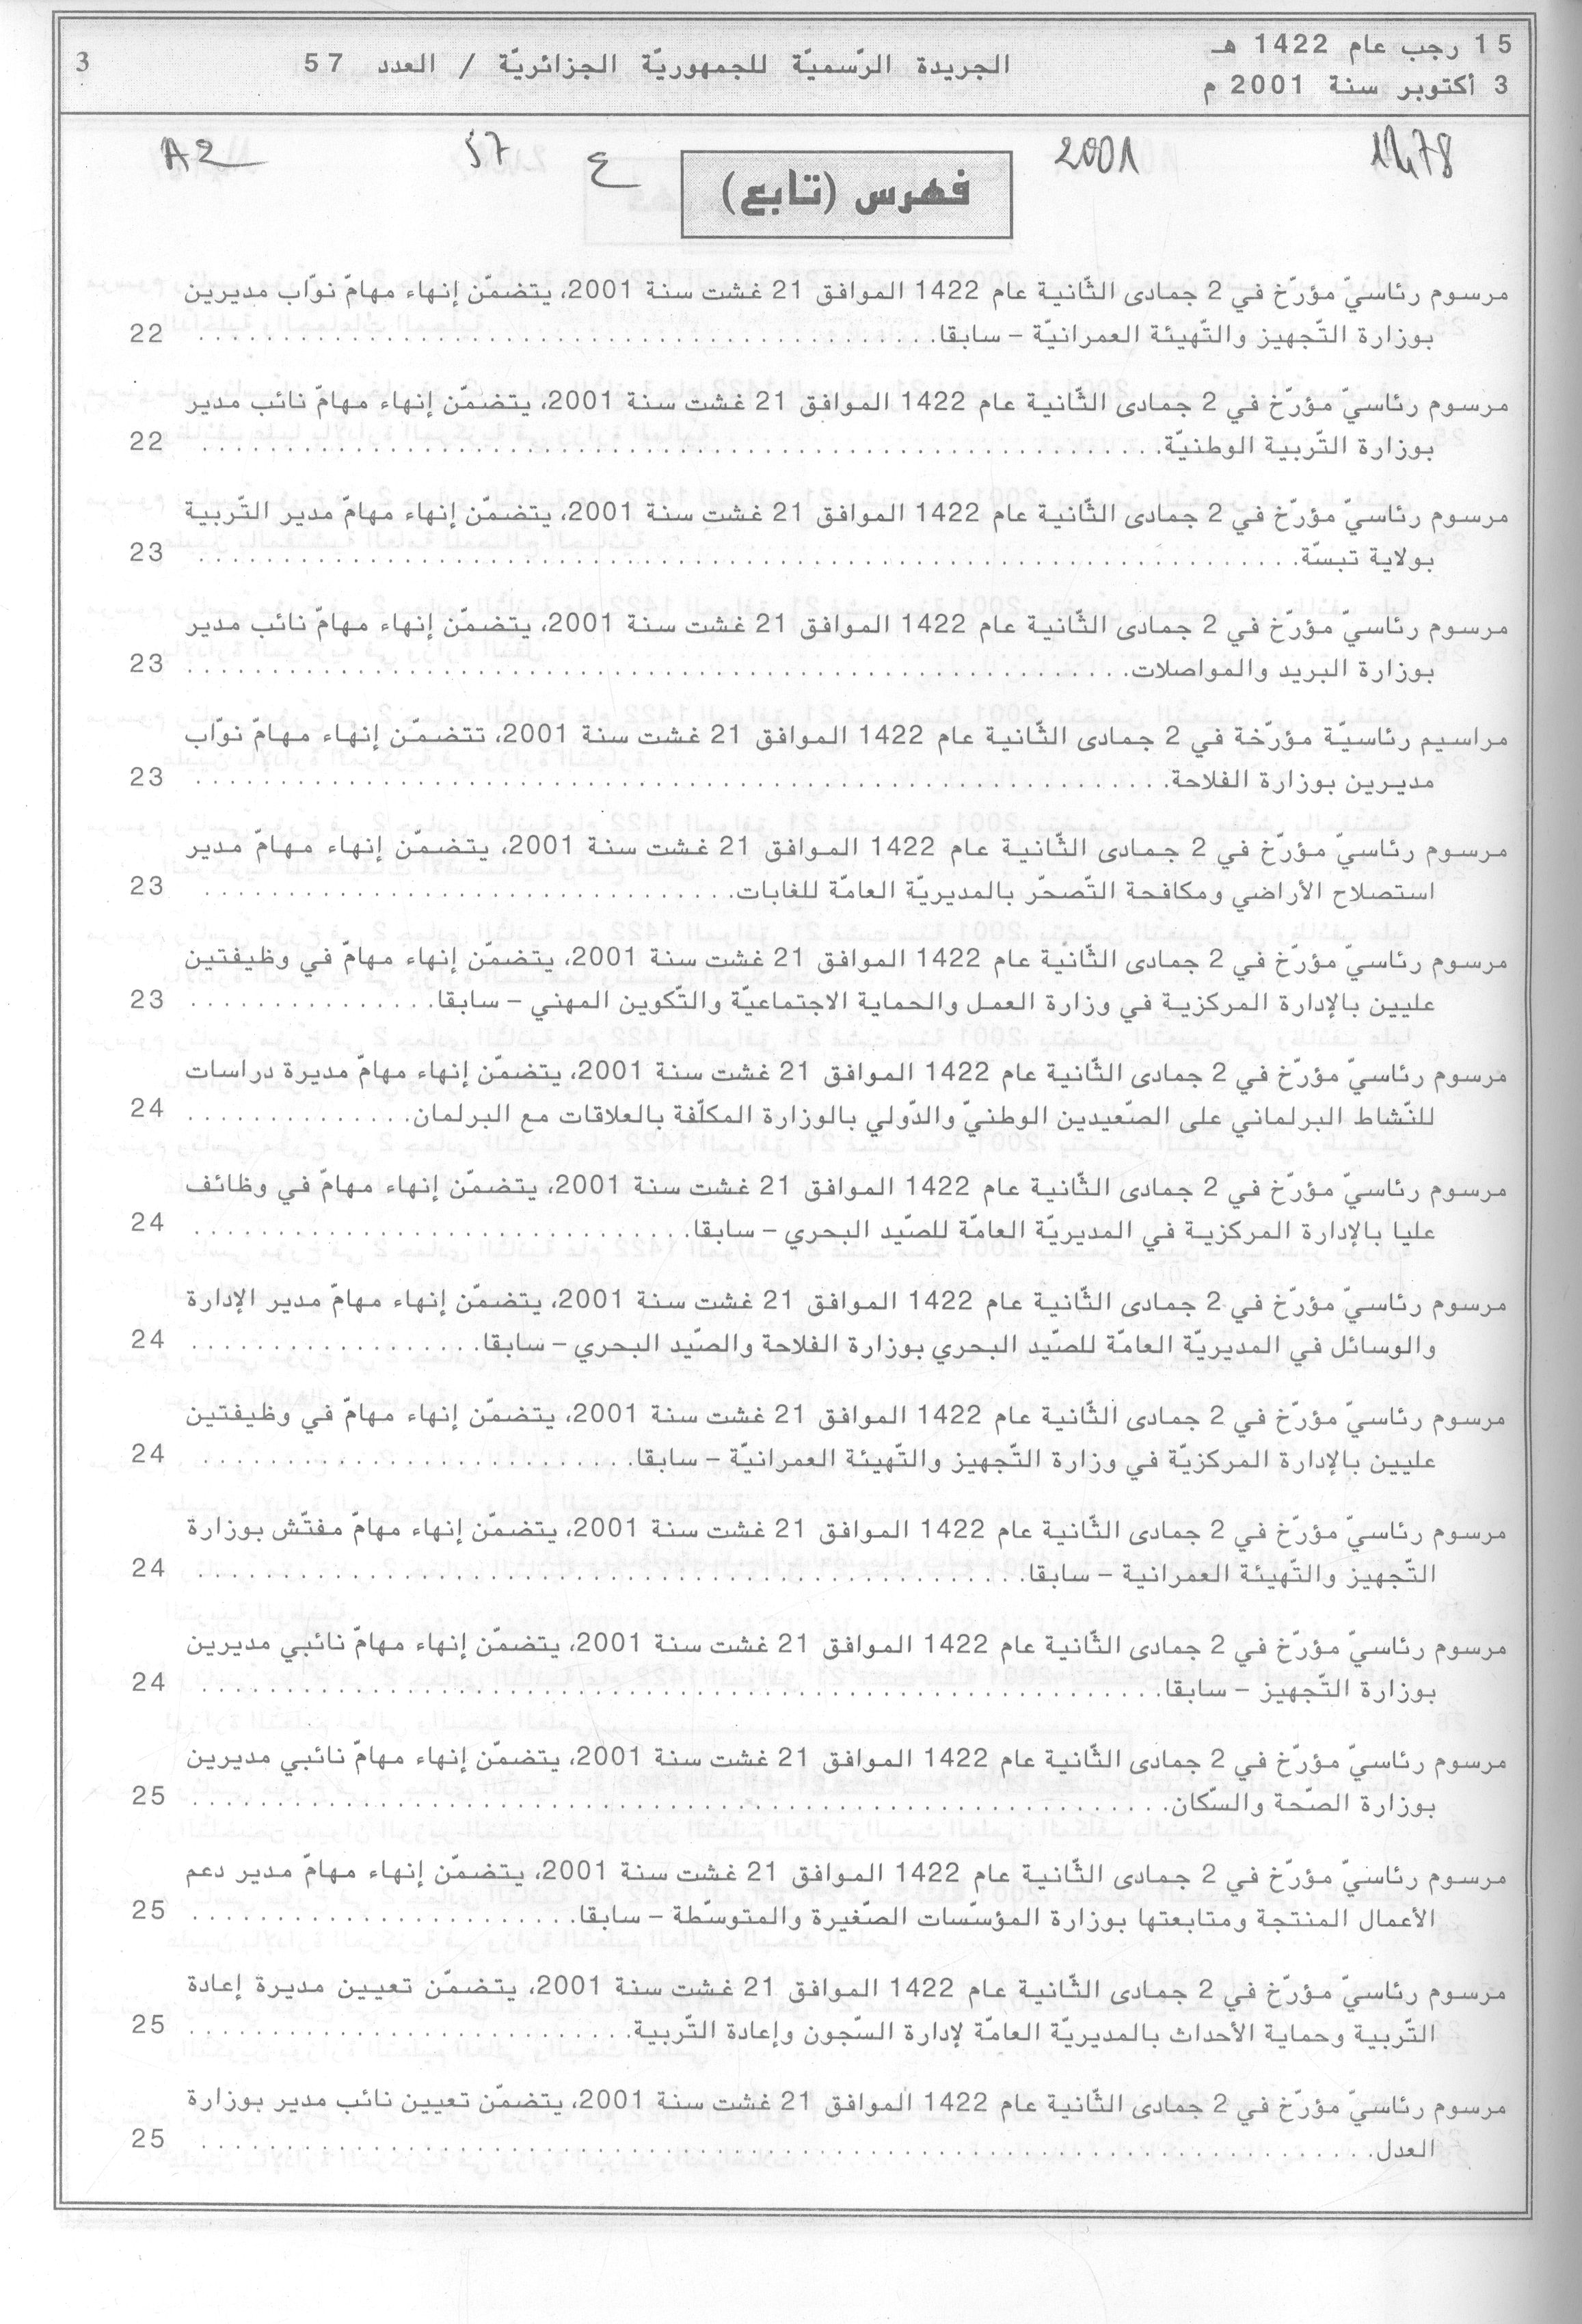 15 رجب عام 1422 هـ
3 أكتوبر سنة 2001 م
الجريدة الرّسميّة للجمهوريّة الجزائريّة / العدد 57
3
2001
ع
57
A2
فهرس (تابع)
مرسوم رئاسيّ مؤرّخ في 2 جمادى الثّانية عام 1422 الموافق 21 غشت سنة 2001، يتضمّن إنهاء مهامّ نوّاب مديرين
بوزارة التّجهيز والتّهيئة العمرانيّة – سابقا. 22
مرسوم رئاسيّ مؤرّخ في 2 جمادى الثّانية عام 1422 الموافق 21 غشت سنة 2001، يتضمّن إنهاء مهامّ نائب مدير
بوزارة التّربية الوطنيّة. 22
مرسوم رئاسيّ مؤرّخ في 2 جمادى الثّانية عام 1422 الموافق 21 غشت سنة 2001، يتضمّن إنهاء مهامّ مدير التّربية
بولاية تبسّة. 23
مرسوم رئاسيّ مؤرّخ في 2 جمادى الثّانية عام 1422 الموافق 21 غشت سنة 2001، يتضمّن إنهاء مهامّ نائب مدير
بوزارة البريد والمواصلات. 23
مراسيم رئاسيّة مؤرّخة في 2 جمادى الثّانية عام 1422 الموافق 21 غشت سنة 2001، تتضمّن إنهاء مهامّ نوّاب
مديرين بوزارة الفلاحة. 23
مرسوم رئاسيّ مؤرّخ في 2 جمادى الثّانية عام 1422 الموافق 21 غشت سنة 2001، يتضمّن إنهاء مهامّ مدير
استصلاح الأراضي ومكافحة التّصحّر بالمديريّة العامّة للغابات. 23
مرسوم رئاسيّ مؤرّخ في 2 جمادى الثّانية عام 1422 الموافق 21 غشت سنة 2001، يتضمّن إنهاء مهامّ في وظيفتين
عليين بالإدارة المركزية في وزارة العمل والحماية الاجتماعيّة والتّكوين المهني – سابقا. 23
مرسوم رئاسيّ مؤرّخ في 2 جمادى الثّانية عام 1422 الموافق 21 غشت سنة 2001، يتضمّن إنهاء مهامّ مديرة دراسات
للنّشاط البرلماني على الصّعيدين الوطنيّ والدّولي بالوزارة المكلّفة بالعلاقات مع البرلمان. 24
مرسوم رئاسيّ مؤرّخ في 2 جمادى الثّانية عام 1422 الموافق 21 غشت سنة 2001، يتضمّن إنهاء مهامّ في وظائف
عليا بالإدارة المركزية في المديريّة العامّة للصّيد البحري – سابقا. 24
مرسوم رئاسيّ مؤرّخ في 2 جمادى الثّانية عام 1422 الموافق 21 غشت سنة 2001، يتضمّن إنهاء مهامّ مدير الإدارة
والوسائل في المديريّة العامّة للصّيد البحري بوزارة الفلاحة والصّيد البحري – سابقا. 24
مرسوم رئاسيّ مؤرّخ في 2 جمادى الثّانية عام 1422 الموافق 21 غشت سنة 2001، يتضمّن إنهاء مهامّ في وظيفتين
عليين بالإدارة المركزيّة في وزارة التّجهيز والتّهيئة العمرانيّة – سابقا. 24
مرسوم رئاسيّ مؤرّخ في 2 جمادى الثّانية عام 1422 الموافق 21 غشت سنة 2001، يتضمّن إنهاء مهامّ مفتّش بوزارة
التّجهيز والتّهيئة العمرانية – سابقا. 24
مرسوم رئاسيّ مؤرّخ في 2 جمادى الثّانية عام 1422 الموافق 21 غشت سنة 2001، يتضمّن إنهاء مهامّ نائبي مديرين
بوزارة التّجهيز – سابقا. 24
مرسوم رئاسيّ مؤرّخ في 2 جمادى الثّانية عام 1422 الموافق 21 غشت سنة 2001، يتضمّن إنهاء مهامّ نائبي مديرين
بوزارة الصّحة والسّكان. 25
مرسوم رئاسيّ مؤرّخ في 2 جمادى الثّانية عام 1422 الموافق 21 غشت سنة 2001، يتضمّن إنهاء مهامّ مدير دعم
الأعمال المنتجة ومتابعتها بوزارة المؤسّسات الصّغيرة والمتوسّطة – سابقا. 25
مرسوم رئاسيّ مؤرّخ في 2 جمادى الثّانية عام 1422 الموافق 21 غشت سنة 2001، يتضمّن تعيين مديرة إعادة
التّربية وحماية الأحداث بالمديريّة العامّة لإدارة السّجون وإعادة التّربية. 25
مرسوم رئاسيّ مؤرّخ في 2 جمادى الثّانية عام 1422 الموافق 21 غشت سنة 2001، يتضمّن تعيين نائب مدير بوزارة
العدل. 25